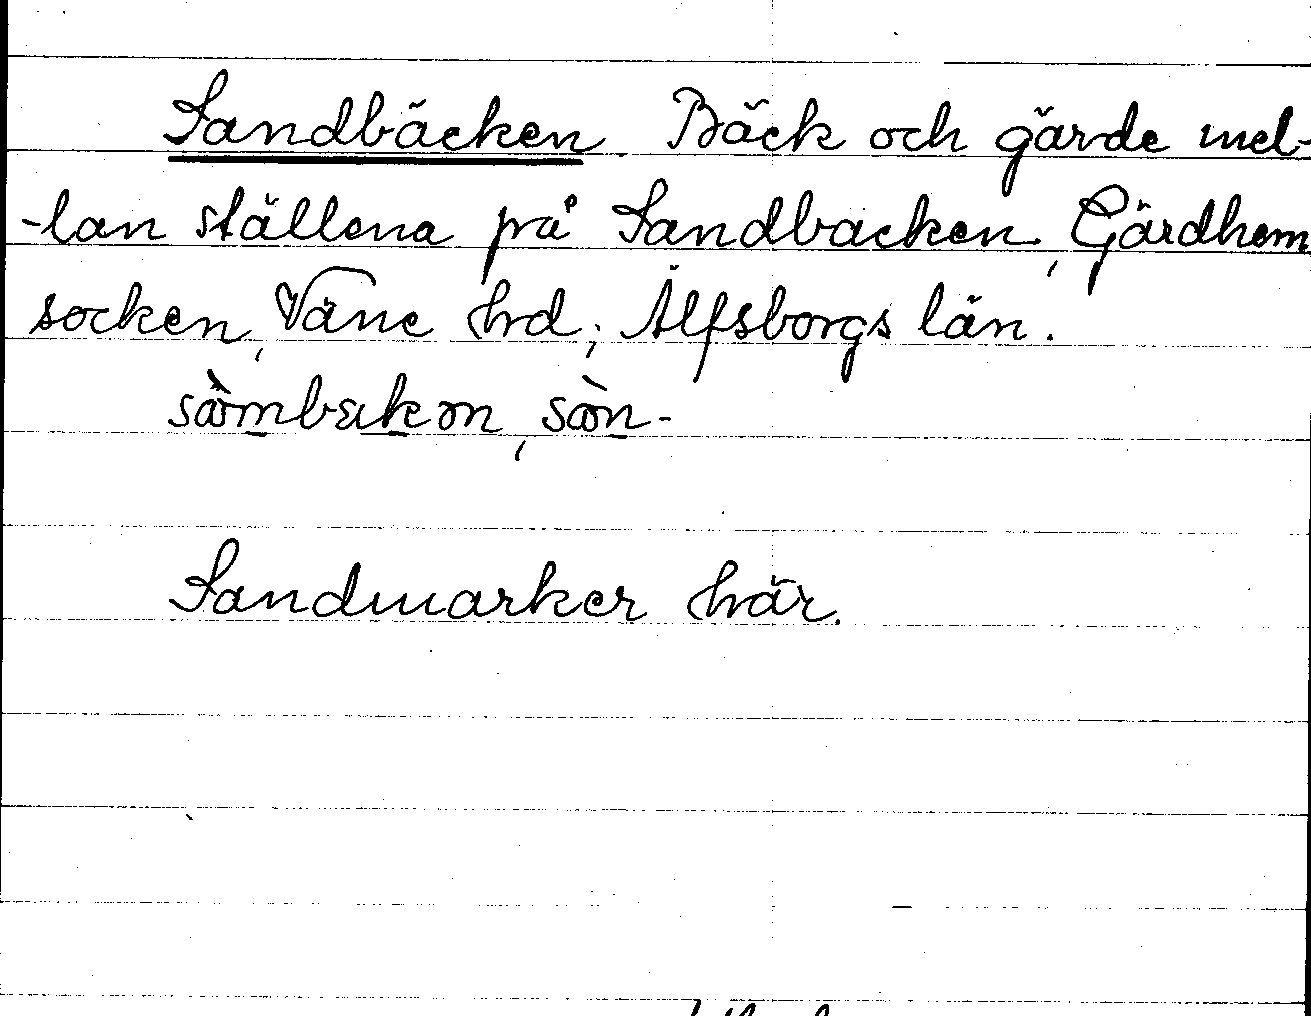 Sandbäcken. Bäck och gärde mel-
-lan ställena på Sandbacken, Gärdhem
socken, Väne hrd; Älfsborgs län.
Sandmarker här.